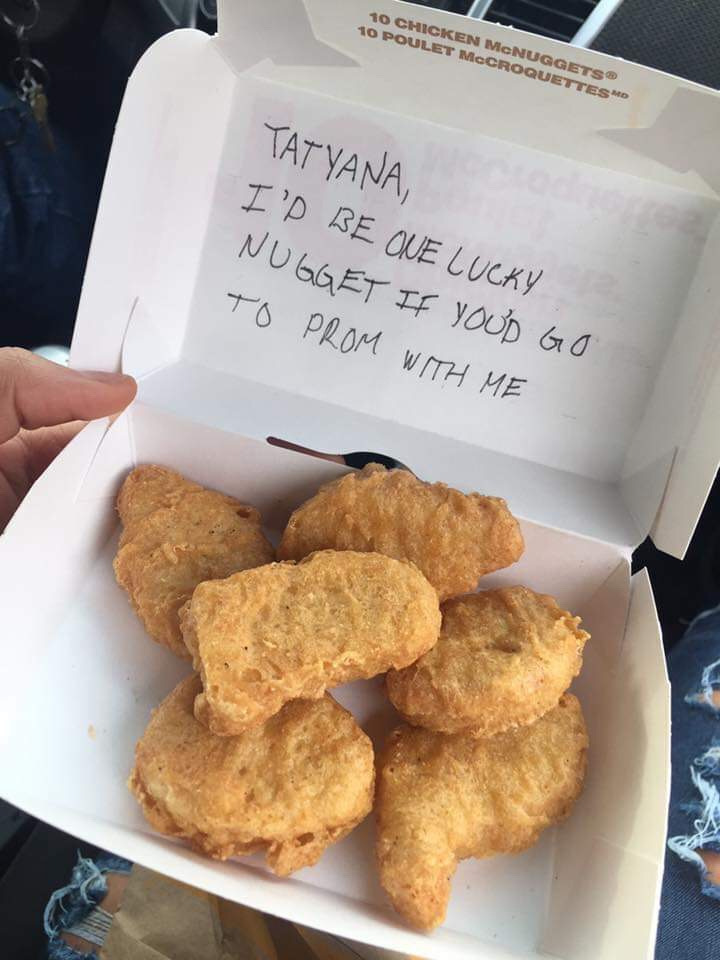 10 CHICKEN McNUGGETS®
10 POULET McCROQUETTES MD
TATYANA,
I'D BE ONE LUCKY
NUGGET IF YOU'D GO
TO PROM WITH ME